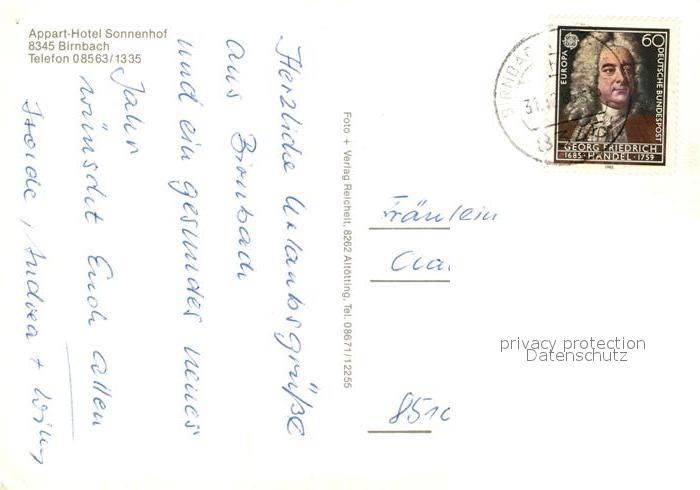 Appart-Hotel Sonnenhof
8345 Birnbach
Telefon 08563/1335
Herzliche Urlaubsgrüße
aus Birnbach
und ein gesundes neues
Jahr
wünscht Euch allen
Heide, Andrea +
Foto + Verlag Reichelt, 8262 Altötting, Tel. 08671/12255
BIRNBACH
31.
EUROPA
60
DEUTSCHE BUNDESPOST
GEORG FRIEDRICH
1685 · HÄNDEL · 1759
Fräulein
8510
privacy protection
Datenschutz